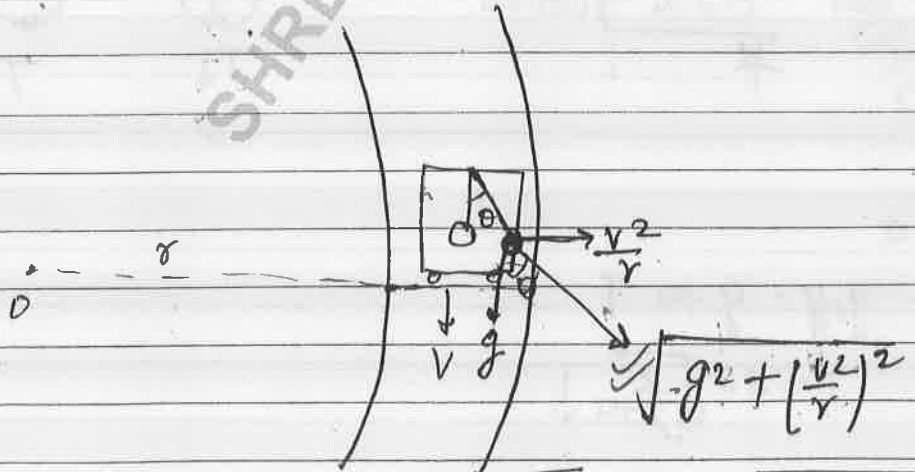 SHRE
θ
v²/r
r
O
θ
V g
√(g² + (v²/r)²)